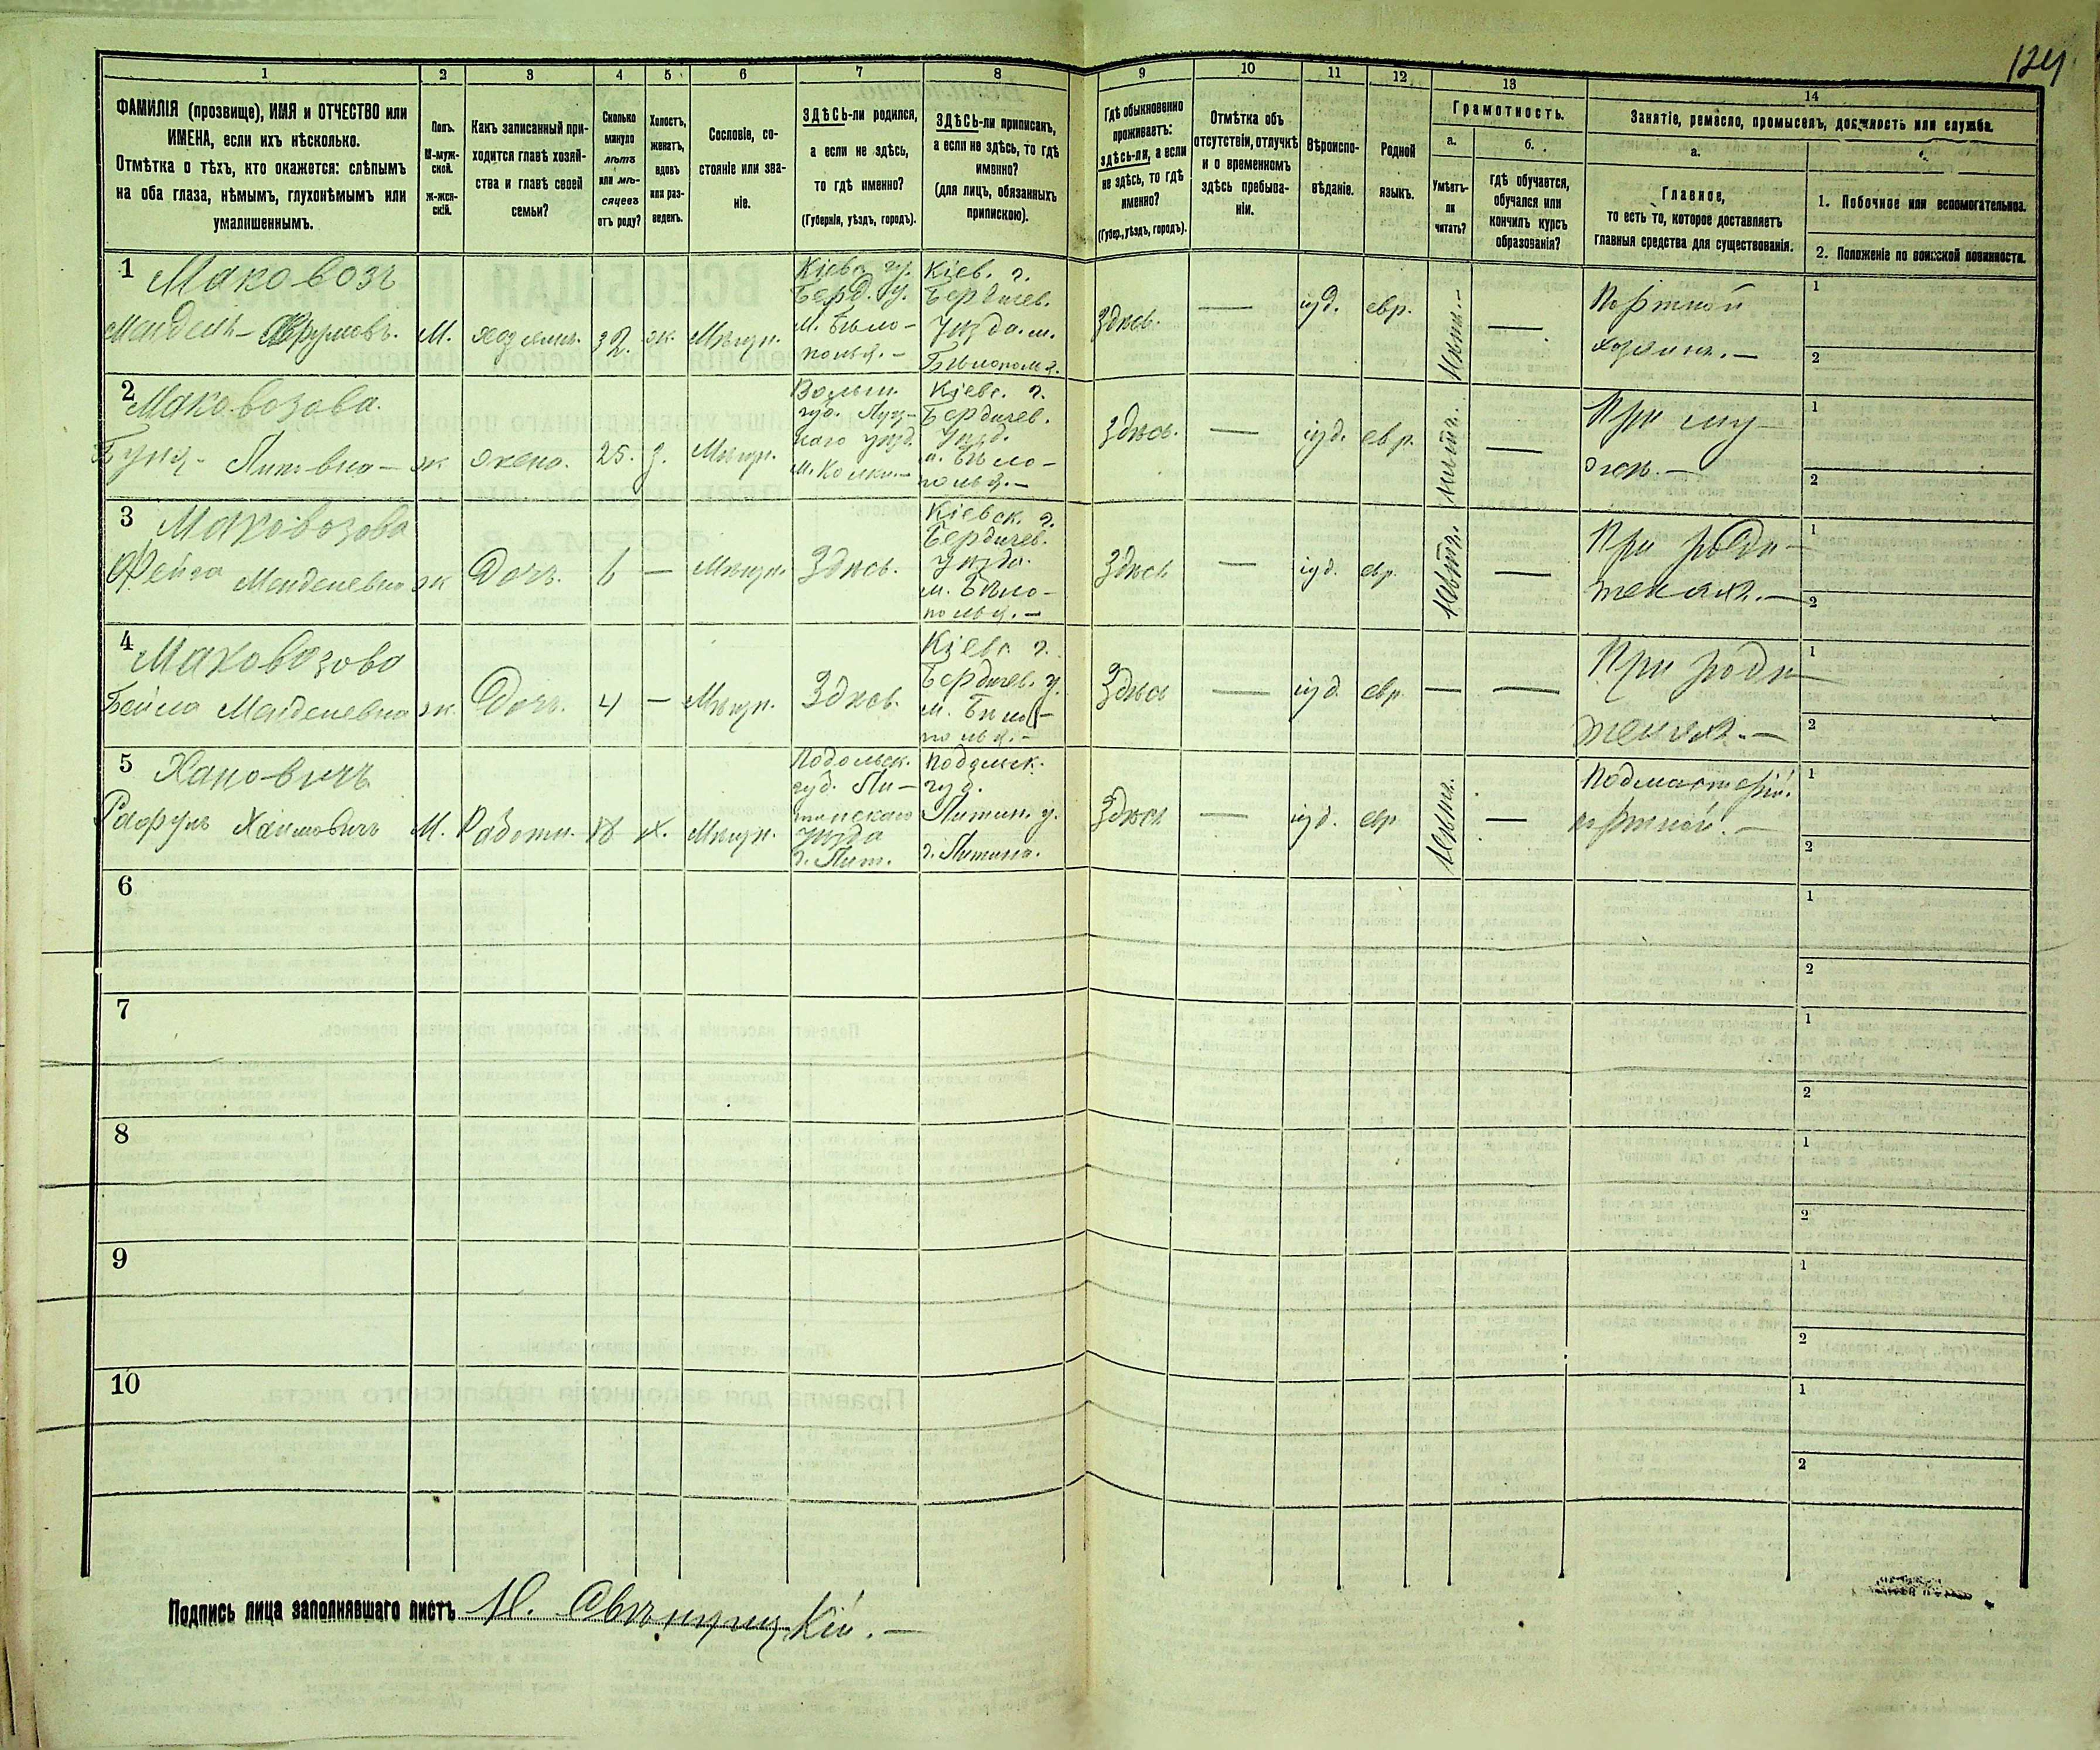 124
1 2 3 4 5 6 7 8 9 10 11 12 13 14
ФАМИЛІЯ (прозвище), ИМЯ и ОТЧЕСТВО или
ИМЕНА, если ихъ нѣсколько.
Отмѣтка о тѣхъ, кто окажется: слѣпымъ
на оба глаза, нѣмымъ, глухонѣмымъ или
умалишеннымъ.
Полъ.
М-муж-
ской.
Ж-жен-
скій.
Какъ записанный при-
ходится главѣ хозяй-
ства и главѣ своей
семьи?
Сколько
минуло
лѣтъ
или мѣ-
сяцевъ
отъ роду?
Холостъ,
женатъ,
вдовъ
или раз-
веденъ.
Сословіе, со-
стояніе или зва-
ніе.
ЗДѢСЬ-ли родился,
а если не здѣсь,
то гдѣ именно?
(Губернія, уѣздъ, городъ).
ЗДѢСЬ-ли приписанъ,
а если не здѣсь, то гдѣ
именно?
(для лицъ, обязанныхъ
припискою).
Гдѣ обыкновенно
проживаетъ:
здѣсь-ли, а если
не здѣсь, то гдѣ
именно?
(Губер., уѣздъ, городъ).
Отмѣтка объ
отсутствіи, отлучкѣ
и о временномъ
здѣсь пребыва-
ніи.
Вѣроиспо-
вѣданіе.
Родной
языкъ.
Грамотность.
а.
Умѣетъ-
ли
читать?
б.
гдѣ обучается,
обучался или
кончилъ курсъ
образованія?
Занятіе, ремесло, промыселъ, должность или служба.
а.
Главное,
то есть то, которое доставляетъ
главныя средства для существованія.
1. Побочное или вспомогательное.
2. Положеніе по воинской повинности.
1
Маковозъ
М.
хозяинъ.
32.
ж.
Мѣщн.
Кіевс. гу.
Берд. у.
м. Бѣло-
полья. -
Кіев. г.
Бердичев.
уѣзда. м.
Бѣлополя.
Здѣсь.
—
іуд.
евр.
—
Портной
хозяинъ. —
1
2
2
Маковозова.
ж
жена.
25.
Мѣщн.
Волын.
губ. Луц-
каго уѣзд.
м. Колки. -
Кіевс. г.
Бердичев.
уѣзд.
м. Бѣло-
полья. -
Здѣсь.
—
іуд.
евр.
—
При му-
жѣ. —
1
2
3
Маковозова
Фейга Менделевна
ж
Дочь.
6
—
Мѣщн.
Здѣсь.
Кіевск. г.
Бердичев.
уѣзда.
м. Бѣло-
полья. -
Здѣсь
—
іуд.
евр.
—
При роди-
теляхъ. —
1
2
4
Маковозова
Бейла Менделевна
ж.
Дочь.
4
—
Мѣщн.
Здѣсь.
Кіевс г.
Бердичев. у.
м. Бѣло-
полья. -
Здѣсь
—
іуд.
евр.
—
—
При роди-
теляхъ. —
1
2
5
Хаимовичъ
М.
Работн.
18
х.
Мѣщн.
Подольск.
губ. Ли-
тинскаго
уѣзда
г. Лит.
Подольск.
губ.
Литин. у.
г. Литина.
Здѣсь
—
іуд.
евр
—
Подмастерій.
портной. —
1
2
6
1
2
7
1
2
8
1
2
9
1
2
10
1
2
Подпись лица заполнявшаго листъ